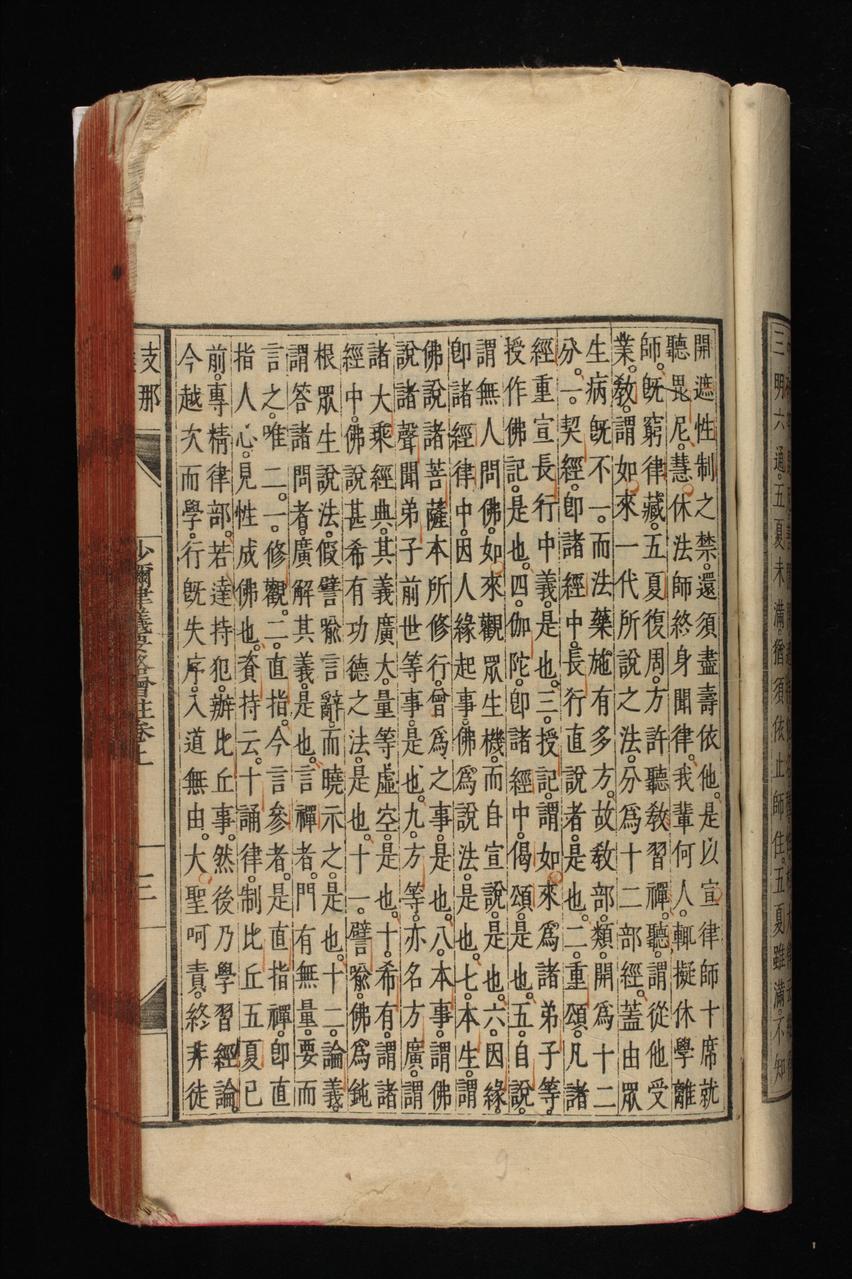 三明六通。五夏未滿。猶須依止師住。五夏雖滿。不知
開遮性制之禁。還須盡壽依他。是以宣律師十席就
聽毘尼。慧休法師終身聞律。我輩何人。輒擬休學離
師。旣窮律藏。五夏復周。方許聽敎習禪。聽謂從他受
業。敎謂如來一代所說之法。分爲十二部經。蓋由眾
生病旣不一。而法藥施有多方。故敎部類。開爲十二
分。一。契經。卽諸經中。長行直說者。是也。二。重頌。凡諸
經重宣長行中義。是也。三。授記。謂如來爲諸弟子等。
授作佛記。是也。四。伽陀。卽諸經中。偈頌。是也。五。自說。
謂無人問佛。如來觀眾生機。而自宣說。是也。六。因緣。
卽諸經律中。因人緣起事。佛爲說法。是也。七。本生。謂
佛說諸菩薩本所修行。曾爲之事。是也。八。本事。謂佛
說諸聲聞弟子前世等事。是也。九。方等。亦名方廣。謂
諸大乘經典。其義廣大。量等虛空。是也。十。希有。謂諸
經中。佛說甚希有功德之法。是也。十一。譬喻。佛爲鈍
根眾生說法。假譬喻言辭。而曉示之。是也。十二。論義。
謂答諸問者。廣解其義。是也。言禪者。門有無量。要而
言之。唯二。一。修觀。二。直指。今言參者。是直指禪。卽直
指人心。見性成佛也。資持云。十誦律。制比丘五夏已
前。專精律部。若達持犯。辦比丘事。然後乃學習經論。
今越次而學。行旣失序。入道無由。大聖呵責。終非徒
支那
沙彌律儀要略會註卷上
三